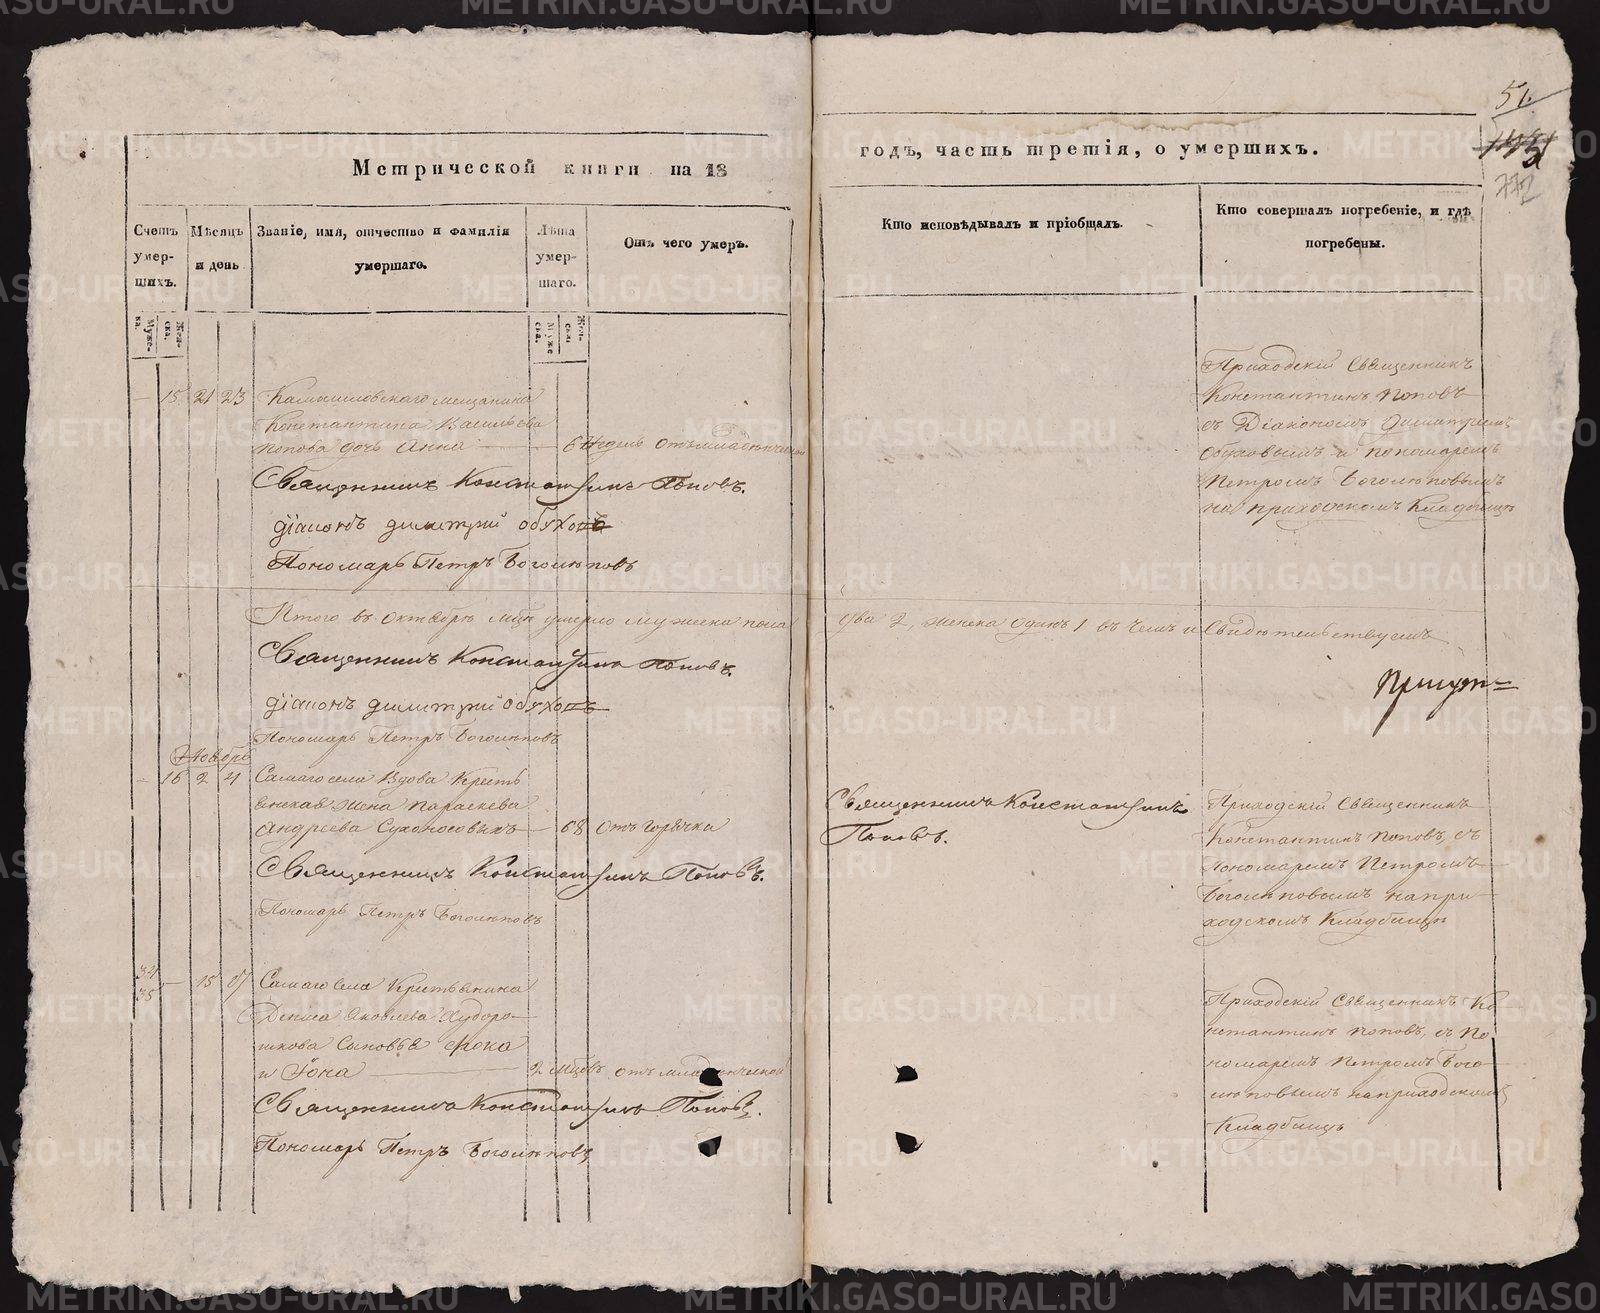 51.
Метрической книги на 18
годъ, часть третія, о умершихъ.
Счетъ умер-
шихъ.
Мѣсяцъ
и день
Званіе, имя, отчество и фамилія
умершаго.
Лѣта
умер-
шаго.
Отъ чего умеръ.
Кто исповѣдывалъ и пріобщалъ.
Кто совершалъ погребеніе, и гдѣ
погребены.
Муже-
ска.
Жен-
ска.
Муже
ска.
Жен-
ска
— 15 21 23 Камышловскаго мещанина
Константина Васильева
Попова дочь Анна — 6 недель отъ младенческой
Приходскій Священникъ
Константинъ Поповъ
съ Діакономъ Димитріемъ
Обуховымъ и пономаремъ
Петромъ Боголѣповымъ
на приходскомъ Кладбищѣ
Священникъ Константинъ Поповъ.
діаконъ димитрий обуховъ
Пономарь Петръ Боголѣповъ
Итого въ октябрѣ мцѣ умерло мужеска пола
два 2, женска одинъ 1 въ чемъ и свидѣтельствуемъ
Священникъ Константинъ Поповъ.
діаконъ димитрий обуховъ
Пономарь Петръ Боголѣповъ
Ноябрь
— 16 2 4 Самаго села Вдова Кресть
янская жена Параскева
Андреева Сухоносовыхъ — 68 отъ горячки
Священникъ Константинъ
Поповъ.
Приходскій Священникъ
Константинъ Поповъ, съ
пономаремъ Петромъ
Боголѣповымъ на при-
ходскомъ Кладбищѣ
Священникъ Константинъ Поповъ.
Пономарь Петръ Боголѣповъ
34
35 — 15
Самаго села Крестьянина
Дениса Яковлева
Сыновья
и Іона — 2 мцовъ отъ младенческой
Приходскій Священникъ Ко-
нстантинъ Поповъ, съ По-
номаремъ Петромъ Бого-
лѣповымъ на приходскомъ
Кладбищѣ
Священникъ Константинъ Поповъ.
Пономарь Петръ Боголѣповъ
METRIKI.GASO-URAL.RU